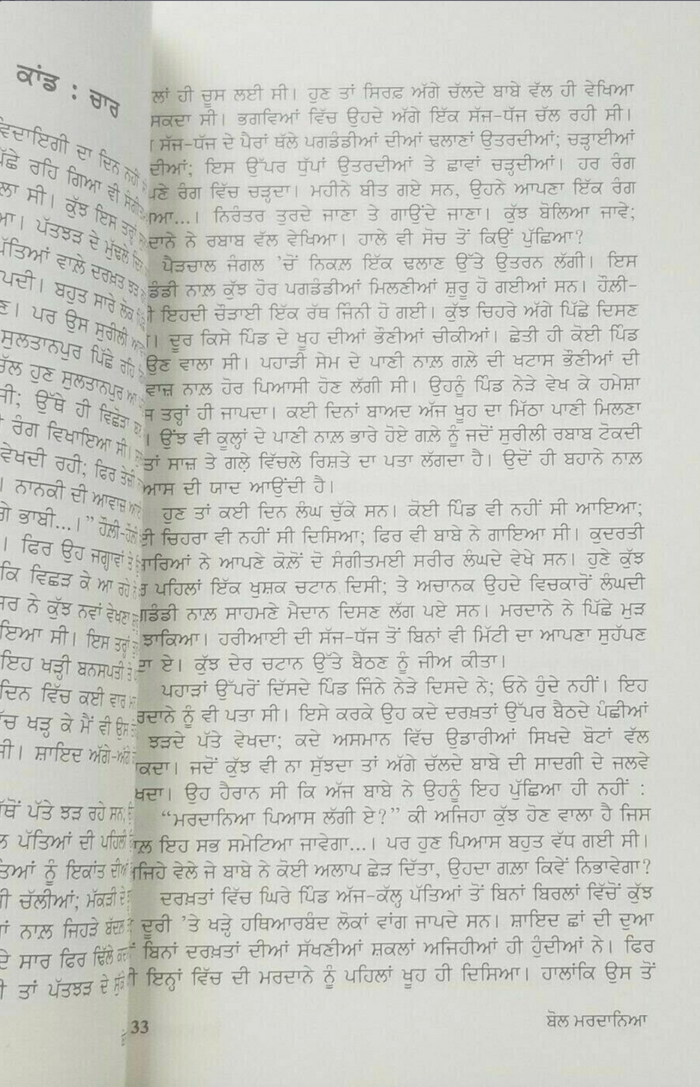 ਕਾਂਡ : ਚਾਰ
ਵਿਦਾਇਗੀ ਦਾ ਦਿਨ ਨਹੀਂ
ਪਿੱਛੇ ਰਹਿ ਗਿਆ ਵੀ
ਲਾ ਸੀ। ਕੁੱਝ ਇਸ ਤਰ੍ਹਾਂ
ਆ। ਪੱਤਝੜ ਦੇ ਮੁੱਢਲੇ ਦਿਨ
ਪੱਤਿਆਂ ਵਾਲ਼ੇ ਦਰਖ਼ਤ ਝੜ
ਪਦੀ। ਬਹੁਤ ਸਾਰੇ ਲੋਕ
ਣ। ਪਰ ਉਸ ਸੁਰੀਲੀ
ਸੁਲਤਾਨਪੁਰ ਪਿੱਛੇ ਰਹਿ
ਚੱਲ ਹੁਣ ਸੁਲਤਾਨਪੁਰ ਆ
ਸੀ; ਉੱਥੇ ਹੀ ਵਿਛੋੜਾ
ਰੰਗ ਵਿਖਾਇਆ ਸੀ।
ਵੇਖਦੀ ਰਹੀ; ਫਿਰ ਤੇਜ਼ੀ
। ਨਾਨਕੀ ਦੀ ਆਵਾਜ਼
ਗੇ ਭਾਬੀ...।” ਹੌਲੀ-ਹੌਲੀ
। ਫਿਰ ਉਹ ਜਗ੍ਹਾਵਾਂ ਤੇ
ਕਿ ਵਿਛੜ ਕੇ ਆ ਰਹੇ
ਸਰ ਨੇ ਕੁੱਝ ਨਵਾਂ ਵੇਖਣਾ
ਇਆ ਸੀ। ਇਸ ਤਰ੍ਹਾਂ
ਇਹ ਖੜ੍ਹੀ ਬਨਸਪਤੀ ਤੇ
ਦਿਨ ਵਿੱਚ ਕਈ ਵਾਰ
ੱਚ ਖੜ੍ਹ ਕੇ ਮੈਂ ਵੀ ਉਸ
ਸੀ। ਸ਼ਾਇਦ ਅੱਗੇ-ਅੱਗੇ
ੱਥੋਂ ਪੱਤੇ ਝੜ ਰਹੇ ਸਨ,
ਲ ਪੱਤਿਆਂ ਦੀ ਪਹਿਲੀ
ਤਿਆਂ ਨੂੰ ਇਕਾਂਤ ਦੀਆਂ
ੀ ਚੱਲੀਆਂ; ਮੱਕੜੀ ਦੇ
ਾਂ ਨਾਲ਼ ਜਿਹੜੇ ਬੱਦਲ
ਦੇ ਸਾਰ ਫਿਰ ਢਿੱਲੇ
ੀ ਤਾਂ ਪੱਤਝੜ ਦੇ ਸੁੱਕੇ
ਲਾਂ ਹੀ ਚੂਸ ਲਈ ਸੀ। ਹੁਣ ਤਾਂ ਸਿਰਫ਼ ਅੱਗੇ ਚੱਲਦੇ ਬਾਬੇ ਵੱਲ ਹੀ ਵੇਖਿਆ
ਸਕਦਾ ਸੀ। ਭਗਵਿਆਂ ਵਿੱਚ ਉਹਦੇ ਅੱਗੇ ਇੱਕ ਸੱਜ-ਧੱਜ ਚੱਲ ਰਹੀ ਸੀ।
। ਸੱਜ-ਧੱਜ ਦੇ ਪੈਰਾਂ ਥੱਲੇ ਪਗਡੰਡੀਆਂ ਦੀਆਂ ਢਲਾਣਾਂ ਉਤਰਦੀਆਂ; ਚੜ੍ਹਾਈਆਂ
ਦੀਆਂ; ਇਸ ਉੱਪਰ ਧੁੱਪਾਂ ਉਤਰਦੀਆਂ ਤੇ ਛਾਵਾਂ ਚੜ੍ਹਦੀਆਂ। ਹਰ ਰੰਗ
ਪਣੇ ਰੰਗ ਵਿੱਚ ਚੜ੍ਹਦਾ। ਮਹੀਨੇ ਬੀਤ ਗਏ ਸਨ, ਉਹਨੇ ਆਪਣਾ ਇੱਕ ਰੰਗ
ਆ...। ਨਿਰੰਤਰ ਤੁਰਦੇ ਜਾਣਾ ਤੇ ਗਾਉਂਦੇ ਜਾਣਾ। ਕੁੱਝ ਬੋਲਿਆ ਜਾਵੇ;
ਦਾਨੇ ਨੇ ਰਬਾਬ ਵੱਲ ਵੇਖਿਆ। ਹਾਲੇ ਵੀ ਸੋਚ ਤੋਂ ਕਿਉਂ ਪੁੱਛਿਆ?
ਪੈੜਚਾਲ ਜੰਗਲ ’ਚੋਂ ਨਿਕਲ਼ ਇੱਕ ਢਲਾਣ ਉੱਤੇ ਉਤਰਨ ਲੱਗੀ। ਇਸ
ਡੰਡੀ ਨਾਲ਼ ਕੁੱਝ ਹੋਰ ਪਗਡੰਡੀਆਂ ਮਿਲਣੀਆਂ ਸ਼ੁਰੂ ਹੋ ਗਈਆਂ ਸਨ। ਹੌਲ਼ੀ-
ੀ ਇਹਦੀ ਚੌੜਾਈ ਇੱਕ ਰੱਥ ਜਿੰਨੀ ਹੋ ਗਈ। ਕੁੱਝ ਚਿਹਰੇ ਅੱਗੇ ਪਿੱਛੇ ਦਿਸਣ
। ਦੂਰ ਕਿਸੇ ਪਿੰਡ ਦੇ ਖੂਹ ਦੀਆਂ ਭੌਣੀਆਂ ਚੀਕੀਆਂ। ਛੇਤੀ ਹੀ ਕੋਈ ਪਿੰਡ
ਉਣ ਵਾਲਾ ਸੀ। ਪਹਾੜੀ ਸੇਮ ਦੇ ਪਾਣੀ ਨਾਲ਼ ਗਲ਼ੇ ਦੀ ਖਟਾਸ ਭੌਣੀਆਂ ਦੀ
ਵਾਜ਼ ਨਾਲ਼ ਹੋਰ ਪਿਆਸੀ ਹੋਣ ਲੱਗੀ ਸੀ। ਉਹਨੂੰ ਪਿੰਡ ਨੇੜੇ ਵੇਖ ਕੇ ਹਮੇਸ਼ਾ
ਸ ਤਰ੍ਹਾਂ ਹੀ ਜਾਪਦਾ। ਕਈ ਦਿਨਾਂ ਬਾਅਦ ਅੱਜ ਖੂਹ ਦਾ ਮਿੱਠਾ ਪਾਣੀ ਮਿਲਣਾ
। ਉਂਝ ਵੀ ਕੂਲ੍ਹਾਂ ਦੇ ਪਾਣੀ ਨਾਲ਼ ਭਾਰੇ ਹੋਏ ਗਲ਼ੇ ਨੂੰ ਜਦੋਂ ਸੁਰੀਲੀ ਰਬਾਬ ਟੋਕਦੀ
ਤਾਂ ਸਾਜ਼ ਤੇ ਗਲ਼ੇ ਵਿੱਚਲੇ ਰਿਸ਼ਤੇ ਦਾ ਪਤਾ ਲੱਗਦਾ ਹੈ। ਉਦੋਂ ਹੀ ਬਹਾਨੇ ਨਾਲ਼
ਆਸ ਦੀ ਯਾਦ ਆਉਂਦੀ ਹੈ।
ਹੁਣ ਤਾਂ ਕਈ ਦਿਨ ਲੰਘ ਚੁੱਕੇ ਸਨ। ਕੋਈ ਪਿੰਡ ਵੀ ਨਹੀਂ ਸੀ ਆਇਆ;
ਈ ਚਿਹਰਾ ਵੀ ਨਹੀਂ ਸੀ ਦਿਸਿਆ; ਫਿਰ ਵੀ ਬਾਬੇ ਨੇ ਗਾਇਆ ਸੀ। ਕੁਦਰਤੀ
ਾਰਿਆਂ ਨੇ ਆਪਣੇ ਕੋਲ਼ੋਂ ਦੋ ਸੰਗੀਤਮਈ ਸਰੀਰ ਲੰਘਦੇ ਵੇਖੇ ਸਨ। ਹੁਣੇ ਕੁੱਝ
ਰ ਪਹਿਲਾਂ ਇੱਕ ਖੁਸ਼ਕ ਚਟਾਨ ਦਿਸੀ; ਤੇ ਅਚਾਨਕ ਉਹਦੇ ਵਿਚਕਾਰੋਂ ਲੰਘਦੀ
ਗਡੰਡੀ ਨਾਲ਼ ਸਾਹਮਣੇ ਮੈਦਾਨ ਦਿਸਣ ਲੱਗ ਪਏ ਸਨ। ਮਰਦਾਨੇ ਨੇ ਪਿੱਛੇ ਮੁੜ
ਝਾਕਿਆ। ਹਰੀਆਈ ਦੀ ਸੱਜ-ਧੱਜ ਤੋਂ ਬਿਨਾਂ ਵੀ ਮਿੱਟੀ ਦਾ ਆਪਣਾ ਸੁਹੱਪਣ
ਦਾ ਏ। ਕੁੱਝ ਦੇਰ ਚਟਾਨ ਉੱਤੇ ਬੈਠਣ ਨੂੰ ਜੀਅ ਕੀਤਾ।
ਪਹਾੜਾਂ ਉੱਪਰੋਂ ਦਿੱਸਦੇ ਪਿੰਡ ਜਿੰਨੇ ਨੇੜੇ ਦਿਸਦੇ ਨੇ; ਓਨੇ ਹੁੰਦੇ ਨਹੀਂ। ਇਹ
ਰਦਾਨੇ ਨੂੰ ਵੀ ਪਤਾ ਸੀ। ਇਸੇ ਕਰਕੇ ਉਹ ਕਦੇ ਦਰਖ਼ਤਾਂ ਉੱਪਰ ਬੈਠਦੇ ਪੰਛੀਆਂ
ਝੜਦੇ ਪੱਤੇ ਵੇਖਦਾ; ਕਦੇ ਅਸਮਾਨ ਵਿੱਚ ਉਡਾਰੀਆਂ ਸਿਖਦੇ ਬੋਟਾਂ ਵੱਲ
ਕਦਾ। ਜਦੋਂ ਕੁੱਝ ਵੀ ਨਾ ਸੁੱਝਦਾ ਤਾਂ ਅੱਗੇ ਚੱਲਦੇ ਬਾਬੇ ਦੀ ਸਾਦਗੀ ਦੇ ਜਲਵੇ
ਖਦਾ। ਉਹ ਹੈਰਾਨ ਸੀ ਕਿ ਅੱਜ ਬਾਬੇ ਨੇ ਉਹਨੂੰ ਇਹ ਪੁੱਛਿਆ ਹੀ ਨਹੀਂ :
“ਮਰਦਾਨਿਆ ਪਿਆਸ ਲੱਗੀ ਏ?” ਕੀ ਅਜਿਹਾ ਕੁੱਝ ਹੋਣ ਵਾਲਾ ਹੈ ਜਿਸ
ਾਲ਼ ਇਹ ਸਭ ਸਮੇਟਿਆ ਜਾਵੇਗਾ...। ਪਰ ਹੁਣ ਪਿਆਸ ਬਹੁਤ ਵੱਧ ਗਈ ਸੀ।
ਜਿਹੇ ਵੇਲੇ ਜੇ ਬਾਬੇ ਨੇ ਕੋਈ ਅਲਾਪ ਛੇੜ ਦਿੱਤਾ, ਉਹਦਾ ਗਲ਼ਾ ਕਿਵੇਂ ਨਿਭਾਵੇਗਾ?
ਦਰਖ਼ਤਾਂ ਵਿੱਚ ਘਿਰੇ ਪਿੰਡ ਅੱਜ-ਕੱਲ੍ਹ ਪੱਤਿਆਂ ਤੋਂ ਬਿਨਾਂ ਬਿਰਲਾਂ ਵਿੱਚੋਂ ਕੁੱਝ
ਦੂਰੀ ’ਤੇ ਖੜ੍ਹੇ ਹਥਿਆਰਬੰਦ ਲੋਕਾਂ ਵਾਂਗ ਜਾਪਦੇ ਸਨ। ਸ਼ਾਇਦ ਛਾਂ ਦੀ ਦੁਆ
ਬਿਨਾਂ ਦਰਖ਼ਤਾਂ ਦੀਆਂ ਸੱਖਣੀਆਂ ਸ਼ਕਲਾਂ ਅਜਿਹੀਆਂ ਹੀ ਹੁੰਦੀਆਂ ਨੇ। ਫਿਰ
ੀ ਇਨ੍ਹਾਂ ਵਿੱਚ ਦੀ ਮਰਦਾਨੇ ਨੂੰ ਪਹਿਲਾਂ ਖੂਹ ਹੀ ਦਿਸਿਆ। ਹਾਲਾਂਕਿ ਉਸ ਤੋਂ
33
ਬੋਲ ਮਰਦਾਨਿਆ